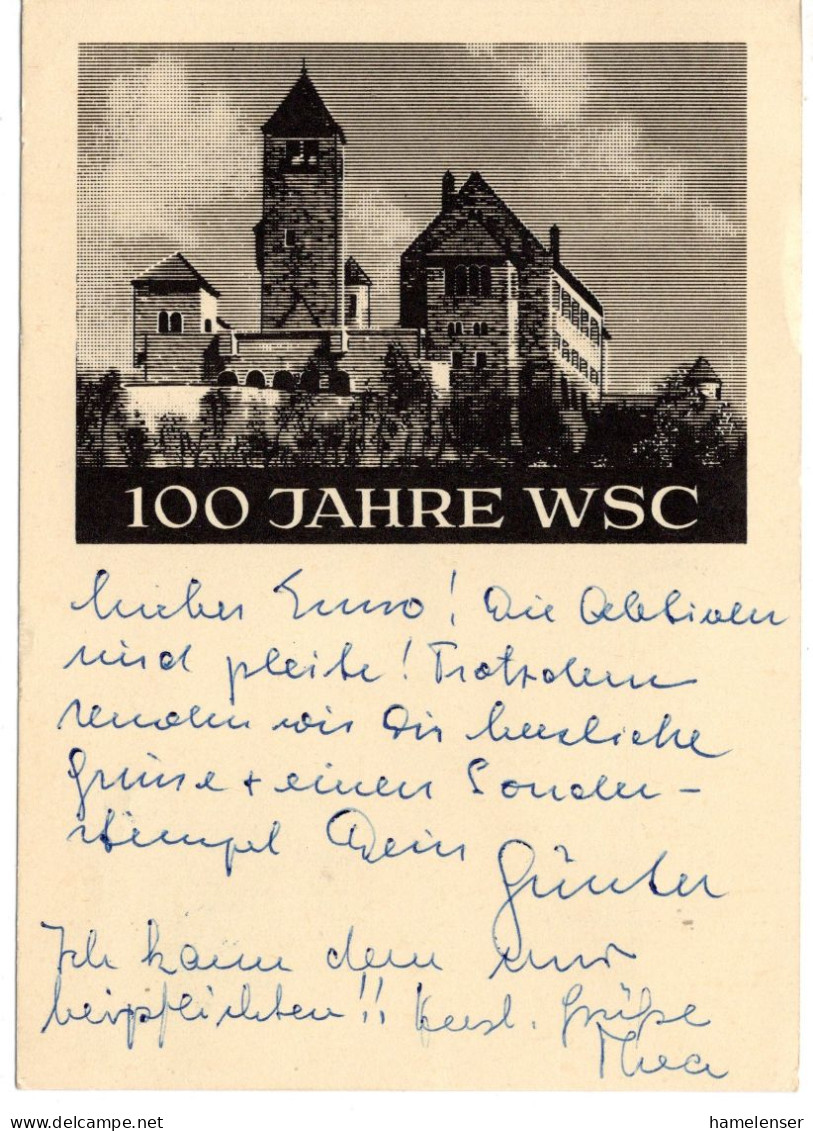 100 JAHRE WSC
Lieber Enno! Die Aktiven
sind pleite! Trotzdem
senden wir Dir herzliche
Grüsse + einen Sonder-
stempel Dein
Günter
Ich kann dem nur
beipflichten!! Herzl. Grüße
Thea
hamelenser